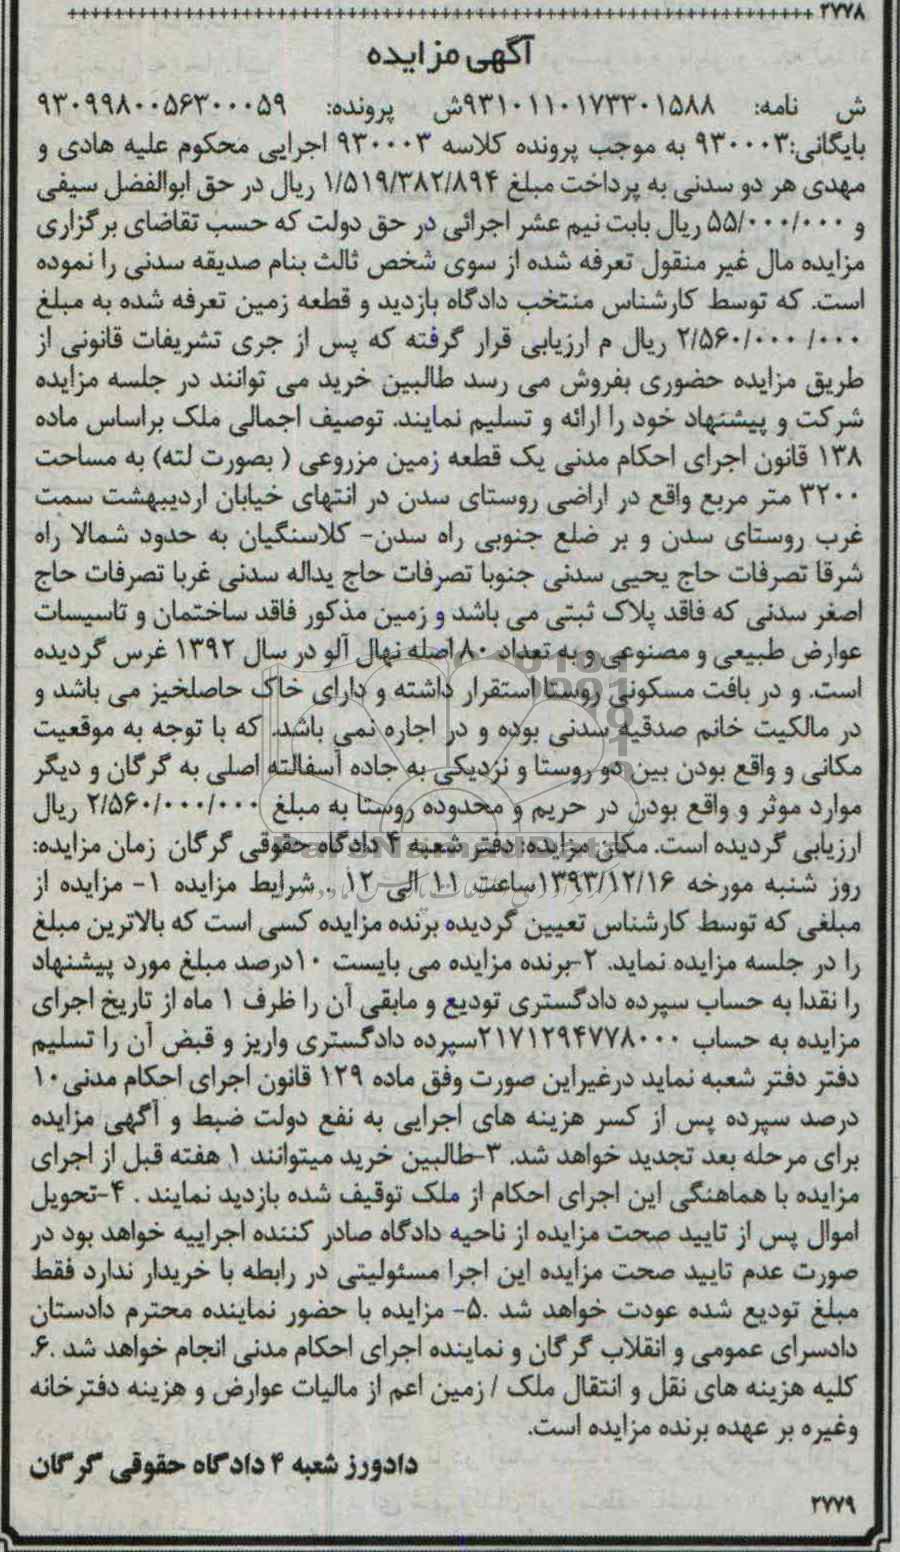 ۲۷۷۸
آگهی مزایده
ش نامه: ۹۳۱۰۱۱۰۱۷۳۳۰۱۵۸۸ش پرونده: ۹۳۰۹۹۸۰۰۵۶۳۰۰۰۵۹
بایگانی:۹۳۰۰۰۳ به موجب پرونده کلاسه ۹۳۰۰۰۳ اجرایی محکوم علیه هادی و
مهدی هر دو سدنی به پرداخت مبلغ ۱/۵۱۹/۳۸۲/۸۹۴ ریال در حق ابوالفضل سیفی
و ۵۵/۰۰۰/۰۰۰ ریال بابت نیم عشر اجرائی در حق دولت که حسب تقاضای برگزاری
مزایده مال غیر منقول تعرفه شده از سوی شخص ثالث بنام صدیقه سدنی را نموده
است. که توسط کارشناس منتخب دادگاه بازدید و قطعه زمین تعرفه شده به مبلغ
۲/۵۶۰/۰۰۰ /۰۰۰ ریال م ارزیابی قرار گرفته که پس از جری تشریفات قانونی از
طریق مزایده حضوری بفروش می رسد طالبین خرید می توانند در جلسه مزایده
شرکت و پیشنهاد خود را ارائه و تسلیم نمایند. توصیف اجمالی ملک براساس ماده
۱۳۸ قانون اجرای احکام مدنی یک قطعه زمین مزروعی ( بصورت لته) به مساحت
۳۲۰۰ متر مربع واقع در اراضی روستای سدن در انتهای خیابان اردیبهشت سمت
غرب روستای سدن و بر ضلع جنوبی راه سدن- کلاسنگیان به حدود شمالا راه
شرقا تصرفات حاج یحیی سدنی جنوبا تصرفات حاج یداله سدنی غربا تصرفات حاج
اصغر سدنی که فاقد پلاک ثبتی می باشد و زمین مذکور فاقد ساختمان و تاسیسات
عوارض طبیعی و مصنوعی و به تعداد ۸۰ اصله نهال آلو در سال ۱۳۹۲ غرس گردیده
است. و در بافت مسکونی روستا استقرار داشته و دارای خاک حاصلخیز می باشد و
در مالکیت خانم صدقیه سدنی بوده و در اجاره نمی باشد. که با توجه به موقعیت
مکانی و واقع بودن بین دو روستا و نزدیکی به جاده آسفالته اصلی به گرگان و دیگر
موارد موثر و واقع بودن در حریم و محدوده روستا به مبلغ ۲/۵۶۰/۰۰۰/۰۰۰ ریال
ارزیابی گردیده است. مکان مزایده: دفتر شعبه ۴ دادگاه حقوقی گرگان زمان مزایده:
روز شنبه مورخه ۱۳۹۳/۱۲/۱۶ساعت ۱۱ الی ۱۲ . شرایط مزایده ۱- مزایده از
مبلغی که توسط کارشناس تعیین گردیده برنده مزایده کسی است که بالاترین مبلغ
را در جلسه مزایده نماید. ۲-برنده مزایده می بایست ۱۰درصد مبلغ مورد پیشنهاد
را نقدا به حساب سپرده دادگستری تودیع و مابقی آن را ظرف ۱ ماه از تاریخ اجرای
مزایده به حساب ۲۱۷۱۲۹۴۷۷۸۰۰۰سپرده دادگستری واریز و قبض آن را تسلیم
دفتر دفتر شعبه نماید درغیراین صورت وفق ماده ۱۲۹ قانون اجرای احکام مدنی۱۰
درصد سپرده پس از کسر هزینه های اجرایی به نفع دولت ضبط و آگهی مزایده
برای مرحله بعد تجدید خواهد شد. ۳-طالبین خرید میتوانند ۱ هفته قبل از اجرای
مزایده با هماهنگی این اجرای احکام از ملک توقیف شده بازدید نمایند . ۴-تحویل
اموال پس از تایید صحت مزایده از ناحیه دادگاه صادر کننده اجراییه خواهد بود در
صورت عدم تایید صحت مزایده این اجرا مسئولیتی در رابطه با خریدار ندارد فقط
مبلغ تودیع شده عودت خواهد شد .۵- مزایده با حضور نماینده محترم دادستان
دادسرای عمومی و انقلاب گرگان و نماینده اجرای احکام مدنی انجام خواهد شد .۶.
کلیه هزینه های نقل و انتقال ملک / زمین اعم از مالیات عوارض و هزینه دفترخانه
وغیره بر عهده برنده مزایده است.
دادورز شعبه ۴ دادگاه حقوقی گرگان
۲۷۷۹